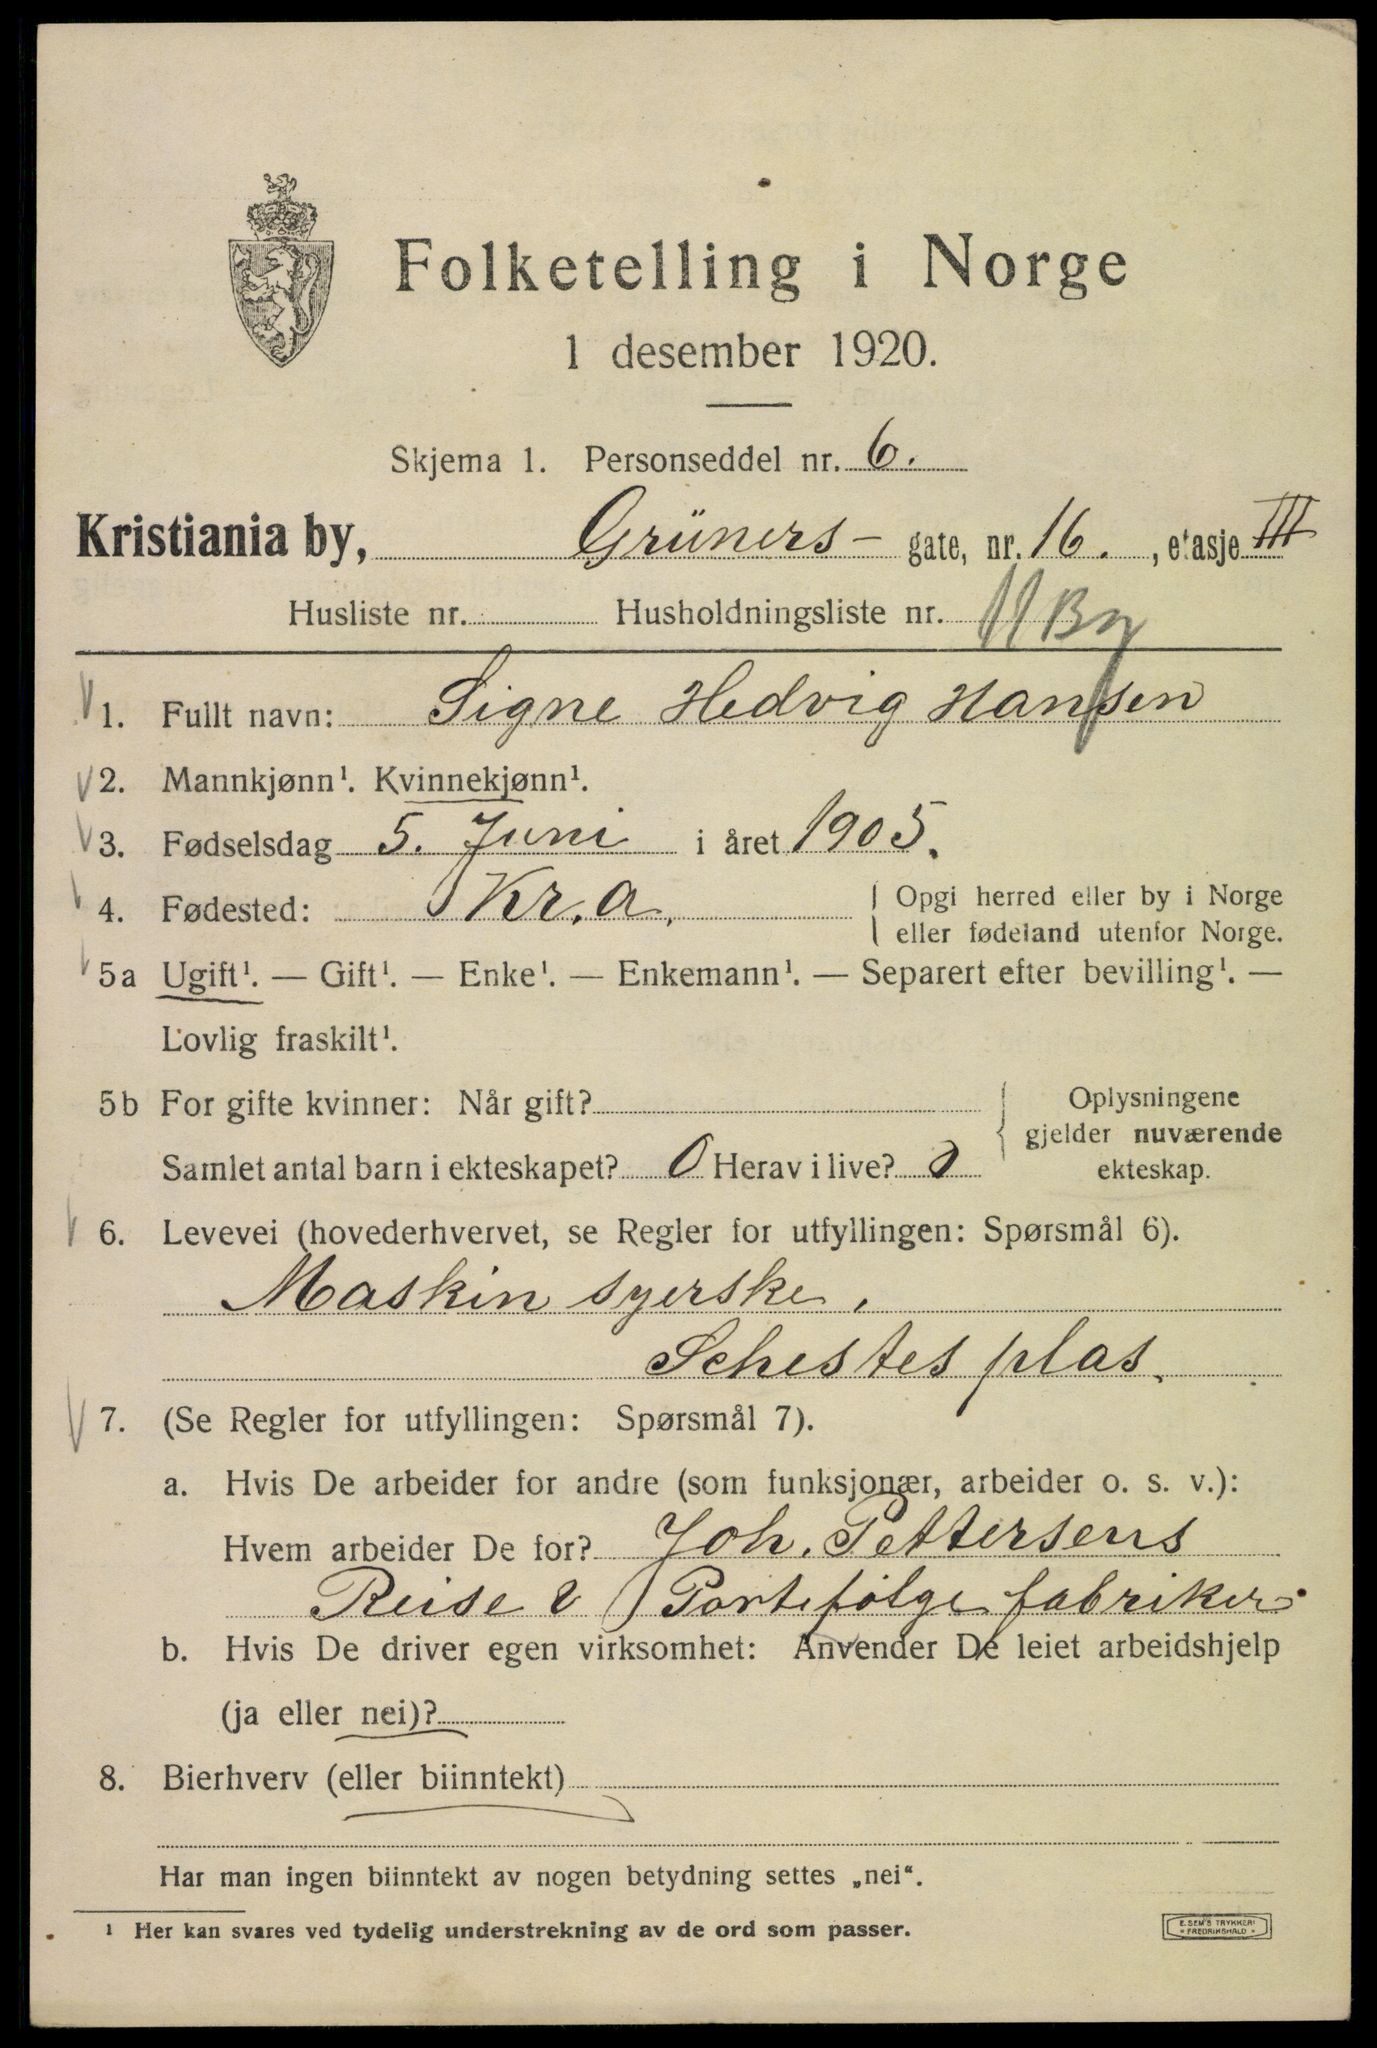 Folketelling i Norge
1 desember 1920.
Skjema 1. Personseddel nr. 6.
Kristiania by, Grüners- gate, nr. 16., etasje III
Husliste nr. Husholdningsliste nr.
1. Fullt navn: Signe Hedvig Hansen
2. Mannkjønn¹. Kvinnekjønn¹.
3. Fødselsdag 5. Juni i året 1905.
4. Fødested: Kr.a. Opgi herred eller by i Norge
eller fødeland utenfor Norge.
5a Ugift¹. — Gift¹. — Enke¹. — Enkemann¹. — Separert efter bevilling¹. —
Lovlig fraskilt¹.
5b For gifte kvinner: Når gift? Oplysningene
gjelder nuværende
Samlet antal barn i ekteskapet? 0 Herav i live? 0 ekteskap.
6. Levevei (hovederhvervet, se Regler for utfyllingen: Spørsmål 6).
Maskin syerske.
Schestes plas.
7. (Se Regler for utfyllingen: Spørsmål 7).
a. Hvis De arbeider for andre (som funksjonær, arbeider o. s. v.):
Hvem arbeider De for? Joh. Pettersens
Reise & Portefølge fabriker
b. Hvis De driver egen virksomhet: Anvender De leiet arbeidshjelp
(ja eller nei)?
8. Bierhverv (eller biinntekt)
Har man ingen biinntekt av nogen betydning settes „nei“.
¹ Her kan svares ved tydelig understrekning av de ord som passer.
E. SEM'S TRYKKERI
* FREDRIKSHALD *